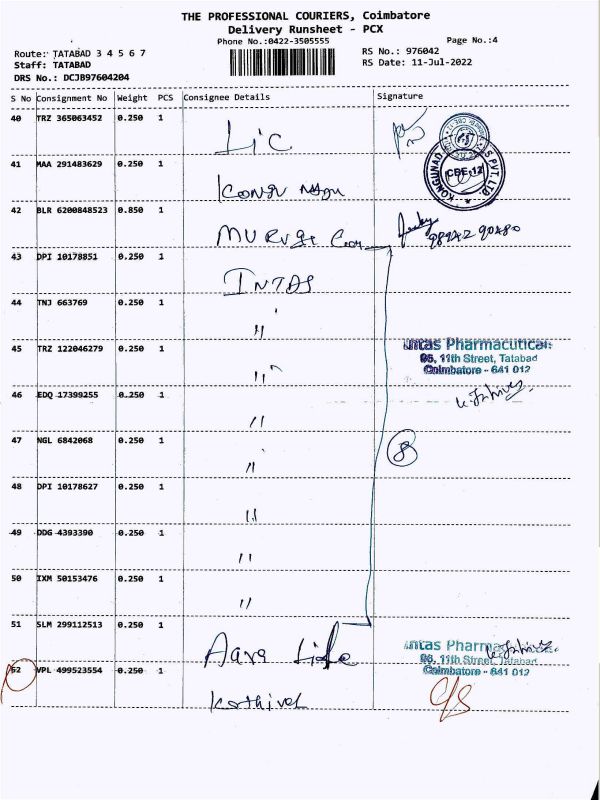 THE PROFESSIONAL COURIERS, Coimbatore
Delivery Runsheet - PCX
Phone No.:0422-3505555
Page No.:4
Route: TATABAD 3 4 5 6 7
Staff: TATABAD
DRS No.: DCJB97604204
RS No.: 976042
RS Date: 11-Jul-2022
S No Consignment No Weight PCS Consignee Details Signature
40 TRZ 365063452 0.250 1 Lic
41 MAA 291483629 0.250 1
KONGUNAD S PVT. LTD.
CBE-12
42 BLR 6200848523 0.850 1
43 DPI 10178851 0.250 1 INTAS
44 TNJ 663769 0.250 1 "
45 TRZ 122046279 0.250 1 "
ntas Pharmacutical
96, 11th Street, Tatabad
Coimbatore - 641 012
46 EDQ 17399255 0.250 1 "
47 NGL 6842068 0.250 1 "
8
48 DPI 10178627 0.250 1 "
49 DDG 4393390 0.250 1 "
50 IXM 50153476 0.250 1 "
51 SLM 299112513 0.250 1 Aara
ntas Pharma
96, 11th Street, Tatabad
Coimbatore - 641 012
52 VPL 499523554 0.250 1